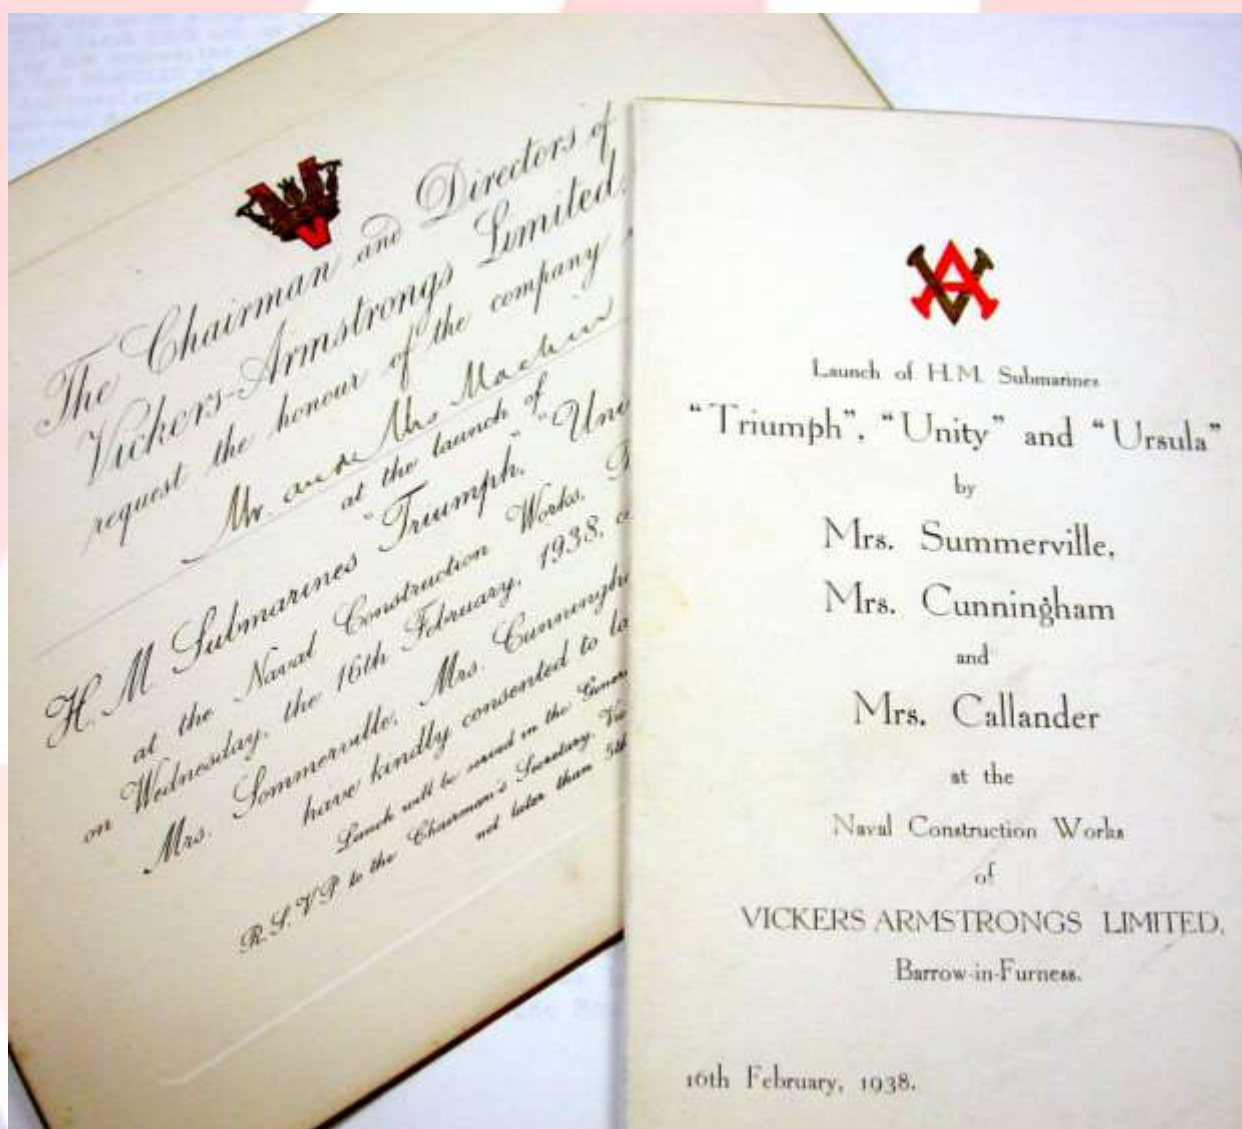 The Chairman and Directors of
Vickers-Armstrongs Limited,
request the honour of the company
Mr. and Mrs
at the launch of
H. M. Submarines "Triumph," "Un
at the Naval Construction Works,
on Wednesday, the 16th February, 1938,
Mrs. Sommerville, Mrs. Cunningh
have kindly consented to la
Lunch will be served in the Gener
R.S.V.P. to the Chairman's Secretary,
not later than 5th
VA
Launch of H.M. Submarines
"Triumph", "Unity" and "Ursula"
by
Mrs. Summerville,
Mrs. Cunningham
and
Mrs. Callander
at the
Naval Construction Works
of
VICKERS ARMSTRONGS LIMITED,
Barrow-in-Furness.
16th February, 1938.